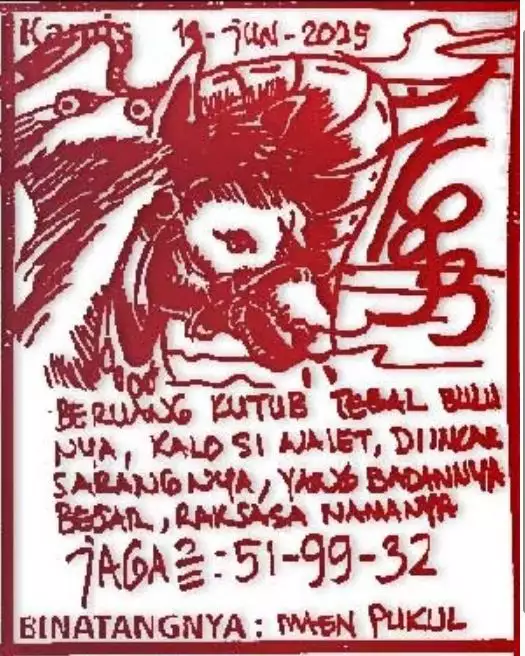 Kamis 19-JUN-2025
BERUANG KUTUB TEBAL BULU
NYA, KALO SI WALET, DIINCAR
SARANGNYA, YANG BADANNYA
BESAR, RAKSASA NAMANYA
JAGA2 = : 51-99-32
BINATANGNYA : MAEN PUKUL